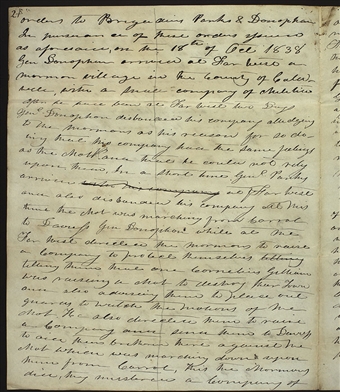 28
orders to Brigadiers Parks & Doniphan
In pursuance of these orders issued
as aforesaid, on the 18th of Oct 1838
Gen Doniphan arrived at Far West a
mormon village in the County of Cald-
well, with a small company of Militia
after he had been at Far West two days
Genl Doniphan disbanded his company alledging
to the Mormons as his reason for so do-
ing that his company had the same feelings
as the Mob and that he could not rely
upon them, in a short time Genl Parks
arrived at Far West
and also disbanded his company at this
time the Mob was marching from Carrol
to Daviess Gen Doniphan while at the
Far West directed the mormons to raise
a Company to protect themselves
telling them that one Cornelius Gilliam
was raising a Mob to destroy their Town
and also advising them to place out
guards to watch the motions of the
Mob He also directed them to raise
a Company and send them to Daviess
to aid their brethren there against the
Mob which was marching down upon
them from Carrol, this the Mormons
did, they mustered a Company of